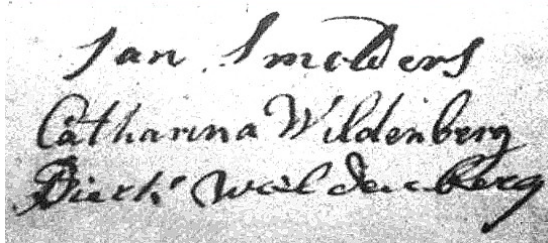 Jan Smolders
Catharina Wildenberg
Dierk Wildenberg